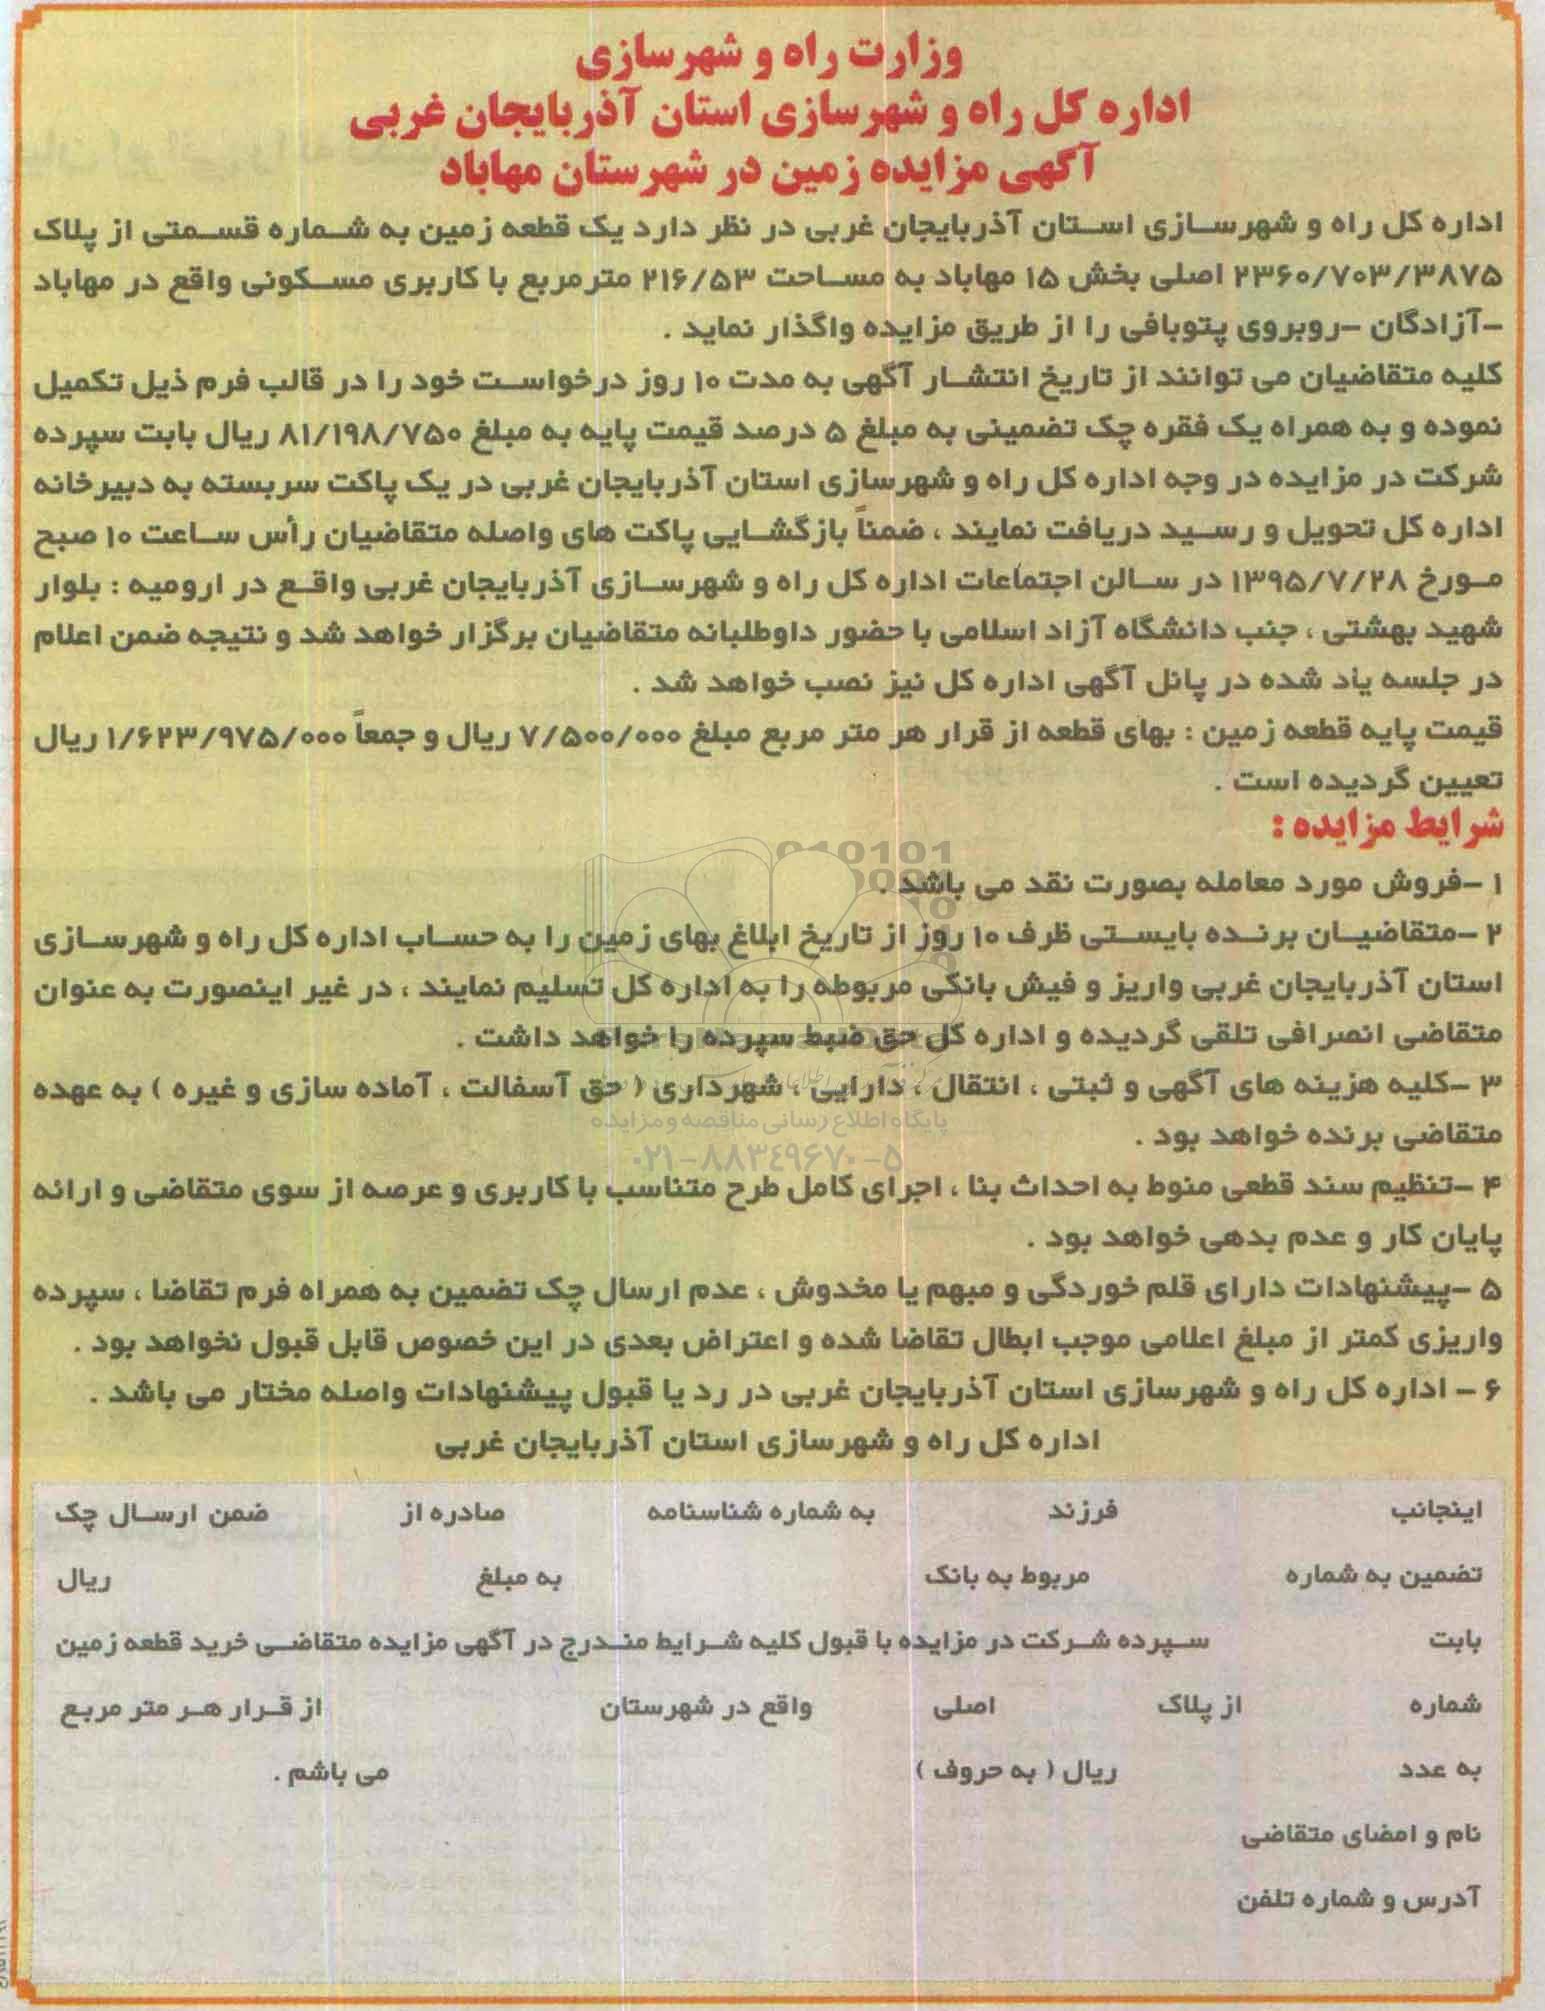 وزارت راه و شهرسازی
اداره کل راه و شهرسازی استان آذربایجان غربی
آگهی مزایده زمین در شهرستان مهاباد
اداره کل راه و شهرسازی استان آذربایجان غربی در نظر دارد یک قطعه زمین به شماره قسمتی از پلاک
۲۳۶۰/۷۰۳/۳۸۷۵ اصلی بخش ۱۵ مهاباد به مساحت ۲۱۶/۵۳ مترمربع با کاربری مسکونی واقع در مهاباد
-آزادگان -روبروی پتوبافی را از طریق مزایده واگذار نماید .
کلیه متقاضیان می توانند از تاریخ انتشار آگهی به مدت ۱۰ روز درخواست خود را در قالب فرم ذیل تکمیل
نموده و به همراه یک فقره چک تضمینی به مبلغ ۵ درصد قیمت پایه به مبلغ ۸۱/۱۹۸/۷۵۰ ریال بابت سپرده
شرکت در مزایده در وجه اداره کل راه و شهرسازی استان آذربایجان غربی در یک پاکت سربسته به دبیرخانه
اداره کل تحویل و رسید دریافت نمایند ، ضمناً بازگشایی پاکت های واصله متقاضیان رأس ساعت ۱۰ صبح
مورخ ۱۳۹۵/۷/۲۸ در سالن اجتماعات اداره کل راه و شهرسازی آذربایجان غربی واقع در ارومیه : بلوار
شهید بهشتی ، جنب دانشگاه آزاد اسلامی با حضور داوطلبانه متقاضیان برگزار خواهد شد و نتیجه ضمن اعلام
در جلسه یاد شده در پانل آگهی اداره کل نیز نصب خواهد شد .
قیمت پایه قطعه زمین : بهای قطعه از قرار هر متر مربع مبلغ ۷/۵۰۰/۰۰۰ ریال و جمعاً ۱/۶۲۳/۹۷۵/۰۰۰ ریال
تعیین گردیده است .
شرایط مزایده :
۱ -فروش مورد معامله بصورت نقد می باشد .
۲ -متقاضیان برنده بایستی ظرف ۱۰ روز از تاریخ ابلاغ بهای زمین را به حساب اداره کل راه و شهرسازی
استان آذربایجان غربی واریز و فیش بانکی مربوطه را به اداره کل تسلیم نمایند ، در غیر اینصورت به عنوان
متقاضی انصرافی تلقی گردیده و اداره کل حق ضبط سپرده را خواهد داشت .
۳ -کلیه هزینه های آگهی و ثبتی ، انتقال ، دارایی ، شهرداری ( حق آسفالت ، آماده سازی و غیره ) به عهده
پایگاه اطلاع رسانی مناقصه و مزایده
متقاضی برنده خواهد بود .
۰۲۱-۸۸۳۴۹۶۷۰-۵
۴ -تنظیم سند قطعی منوط به احداث بنا ، اجرای کامل طرح متناسب با کاربری و عرصه از سوی متقاضی و ارائه
پایان کار و عدم بدهی خواهد بود .
۵ -پیشنهادات دارای قلم خوردگی و مبهم یا مخدوش ، عدم ارسال چک تضمین به همراه فرم تقاضا ، سپرده
واریزی کمتر از مبلغ اعلامی موجب ابطال تقاضا شده و اعتراض بعدی در این خصوص قابل قبول نخواهد بود .
۶ - اداره کل راه و شهرسازی استان آذربایجان غربی در رد یا قبول پیشنهادات واصله مختار می باشد .
اداره کل راه و شهرسازی استان آذربایجان غربی
اینجانب فرزند به شماره شناسنامه صادره از ضمن ارسال چک
تضمین به شماره مربوط به بانک به مبلغ ریال
بابت سپرده شرکت در مزایده با قبول کلیه شرایط مندرج در آگهی مزایده متقاضی خرید قطعه زمین
شماره از پلاک اصلی واقع در شهرستان از قرار هر متر مربع
به عدد ریال ( به حروف ) می باشم .
نام و امضای متقاضی
آدرس و شماره تلفن